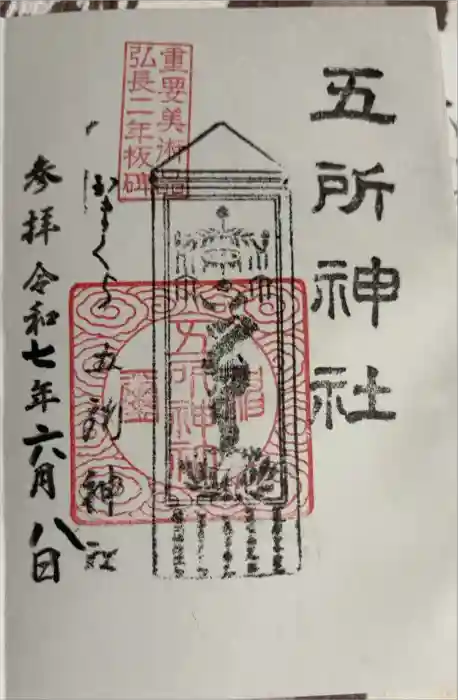 五所神社
重要美術品
弘長二年板碑
五所神社
かまくら五所神社
参拝 令和七年六月八日